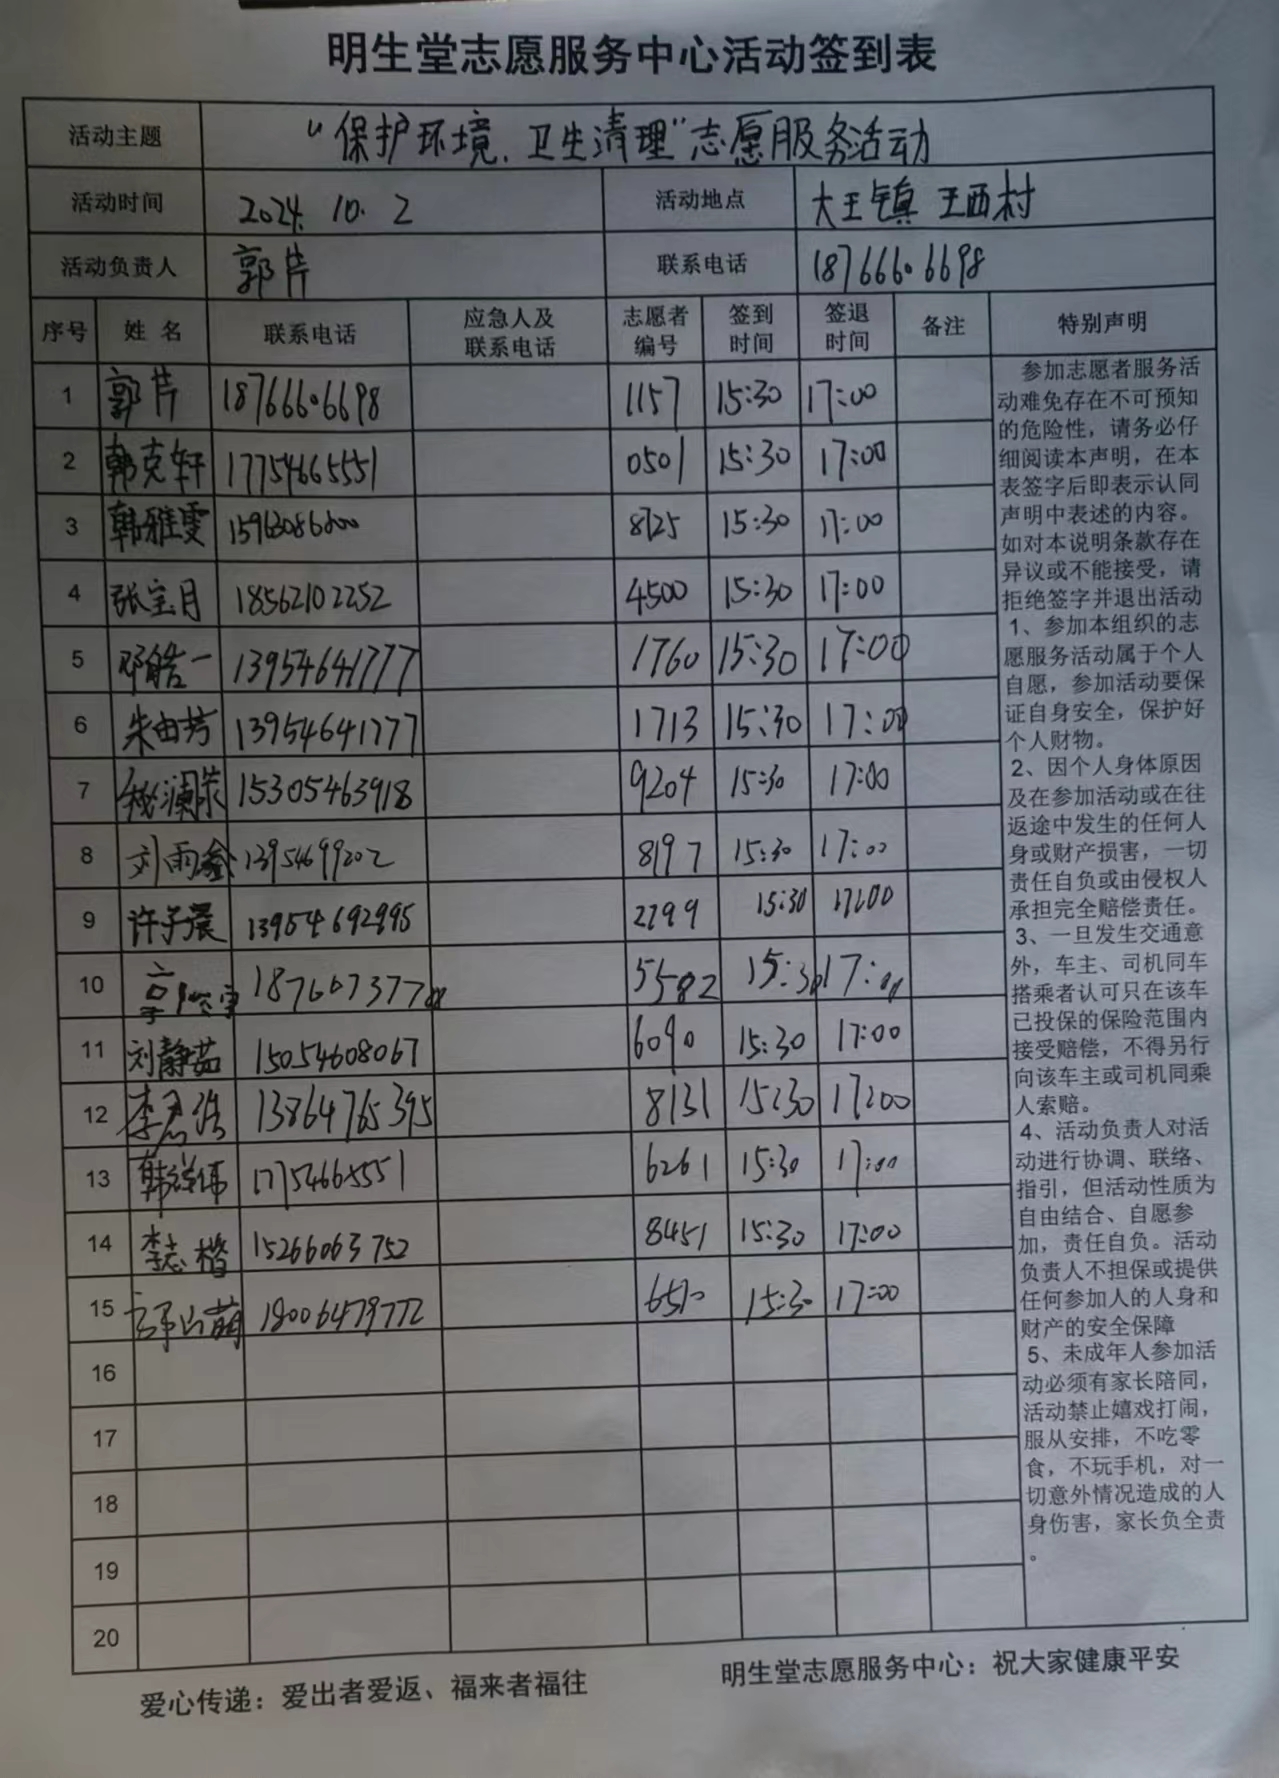 明生堂志愿服务中心活动签到表
活动主题 “保护环境、卫生清理”志愿服务活动
活动时间 2024. 10. 2 活动地点 大王镇 王西村
活动负责人 郭芹 联系电话 18766606698
序号 姓 名 联系电话 应急人及联系电话 志愿者编号 签到时间 签退时间 备注 特别声明
1 郭芹 18766606698 1157 15:30 17:00
2 韩克轩 17754665551 0501 15:30 17:00
3 韩雅雯 8725 15:30 17:00
4 张宝月 18562102252 4500 15:30 17:00
5 邓皓一 13954641777 1760 15:30 17:00
6 朱由芳 13954641777 1713 15:30 17:00
7 15305463918 9204 15:30 17:00
8 刘雨鑫 8197 15:30 17:00
9 许子晨 13954692995 2299 15:30 17:00
10 5582 15:30 17:00
11 刘静茹 15054608067 6090 15:30 17:00
12 13864765395 8131 15:30 17:00
13 韩祥伟 17754665551 6261 15:30 17:00
14 李志楷 15266063752 8451 15:30 17:00
15 15:30 17:00
16
17
18
19
20
参加志愿者服务活
动难免存在不可预知
的危险性，请务必仔
细阅读本声明，在本
表签字后即表示认同
声明中表述的内容。
如对本说明条款存在
异议或不能接受，请
拒绝签字并退出活动
1、参加本组织的志
愿服务活动属于个人
自愿，参加活动要保
证自身安全，保护好
个人财物。
2、因个人身体原因
及在参加活动或在往
返途中发生的任何人
身或财产损害，一切
责任自负或由侵权人
承担完全赔偿责任。
3、一旦发生交通意
外，车主、司机同车
搭乘者认可只在该车
已投保的保险范围内
接受赔偿，不得另行
向该车主或司机同乘
人索赔。
4、活动负责人对活
动进行协调、联络、
指引，但活动性质为
自由结合、自愿参
加，责任自负。活动
负责人不担保或提供
任何参加人的人身和
财产的安全保障
5、未成年人参加活
动必须有家长陪同，
活动禁止嬉戏打闹，
服从安排，不吃零
食，不玩手机，对一
切意外情况造成的人
身伤害，家长负全责
。
爱心传递：爱出者爱返、福来者福往
明生堂志愿服务中心：祝大家健康平安